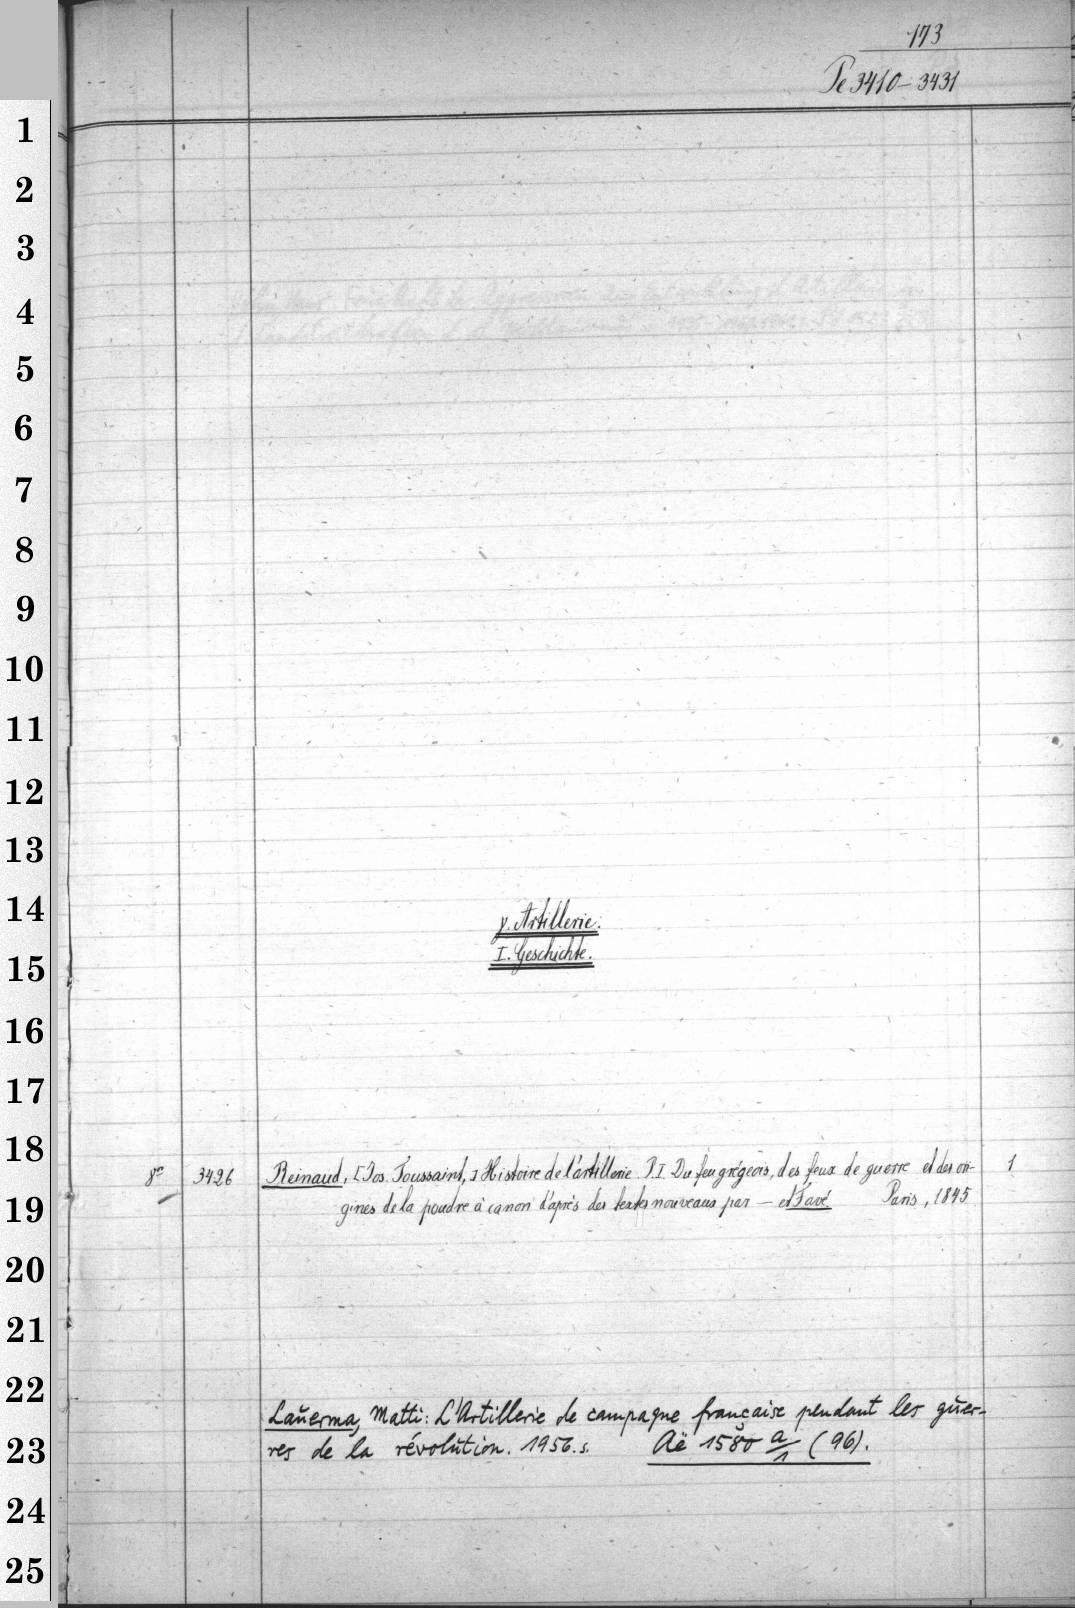 173
Pe 3410-3431
1
2
3
4
5
6
7
8
9
10
11
12
13
14
γ. Artillerie.
15
I. Geschichte.
16
17
18
8° 3426 Reinaud, [Jos. Toussaint,] Histoire de l'artillerie P. I Du feu grégeois, des feux de guerre et des ori- 1
19
gines de la poudre à canon d'après des textes nouveaux par — et Favé Paris, 1845
20
21
22
Lauerma, Matti: L'Artillerie de campagne française pendant les guer-
23
res de la révolution. 1956. s. Aë 1580 a/1 (96).
24
25